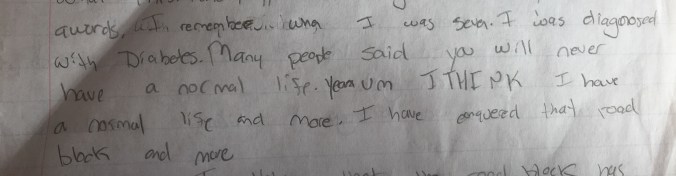 awords. I remember. whn I was seven. I was diagonosed
with Diabetes. Many people said you will never
have a normal life. Yeah um I THINK I have
a normal life and more. I have conquered that road
block and more
road blocks has